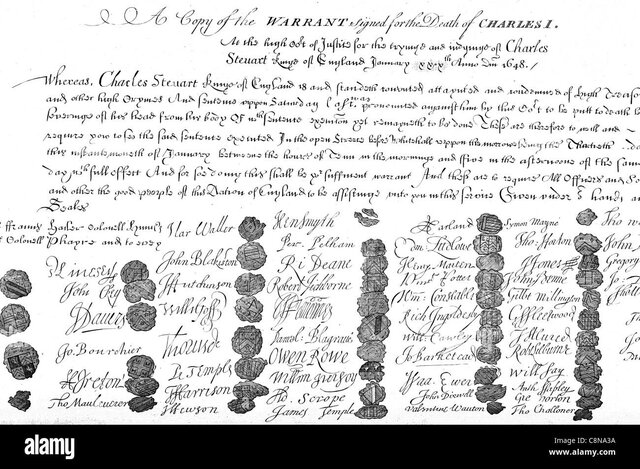 A Copy of the WARRANT Signed for the Death of CHARLES I.
At the high Cot of Justice for the tryinge and iudginge of Charles
Steuart kinge of England January xxixth Anno Dni 1648.
Whereas Charles Steuart kinge of England is and standeth convicted attaynted and condemned of high Treason
and other high Crymes And sentence uppon Saturday last was pronounced against him by this Cot to be putt to death by the
severinge of his head from his body Of wch sentence execucon yet remayneth to be done These are therefore to will and
require you to see the said sentence executed In the open Streete before Whitehall uppon the morrowe being the Thirtieth
this instante moneth of January betweene the houres of Tenn in the morninge and ffive in the afternoone of the same
day wth full effect And for soe doing this shall be yor sufficient warrant And these are to require All Officers and
and other the good people of this Nation of England to be assistinge unto you in this service Given under hands and
Seales
Hacker Colonell Huncks
Colonell Phayre and to every
Har Waller
John Blakiston
J Hutchinson
Tho Pride
P Temple
T Harrison
J Hewson
Hen Smyth
Per Pelham
Ri Deane
Robert Tichborne
Owen Rowe
William
Ad Scrope
James Temple
Edm Ludlowe
Henry Marten
Vinct Potter
Wm Constable
Rich Ingoldesby
Will Cawley
Jo Barkestead
Isaa Ewer
John Dixwell
Valentine Wauton
Symon Mayne
Tho Horton
J Jones
John
Gilbt Millington
G Fleetwood
J Alured
Robt Lilburne
Will Say
Anth Stapley
Gre Norton
Tho Challoner
M Livesey
John Okey
J Danvers
Jo Bourchier
H Ireton
Tho Mauleverer
alamy
Image ID: C8NA3A
www.alamy.com